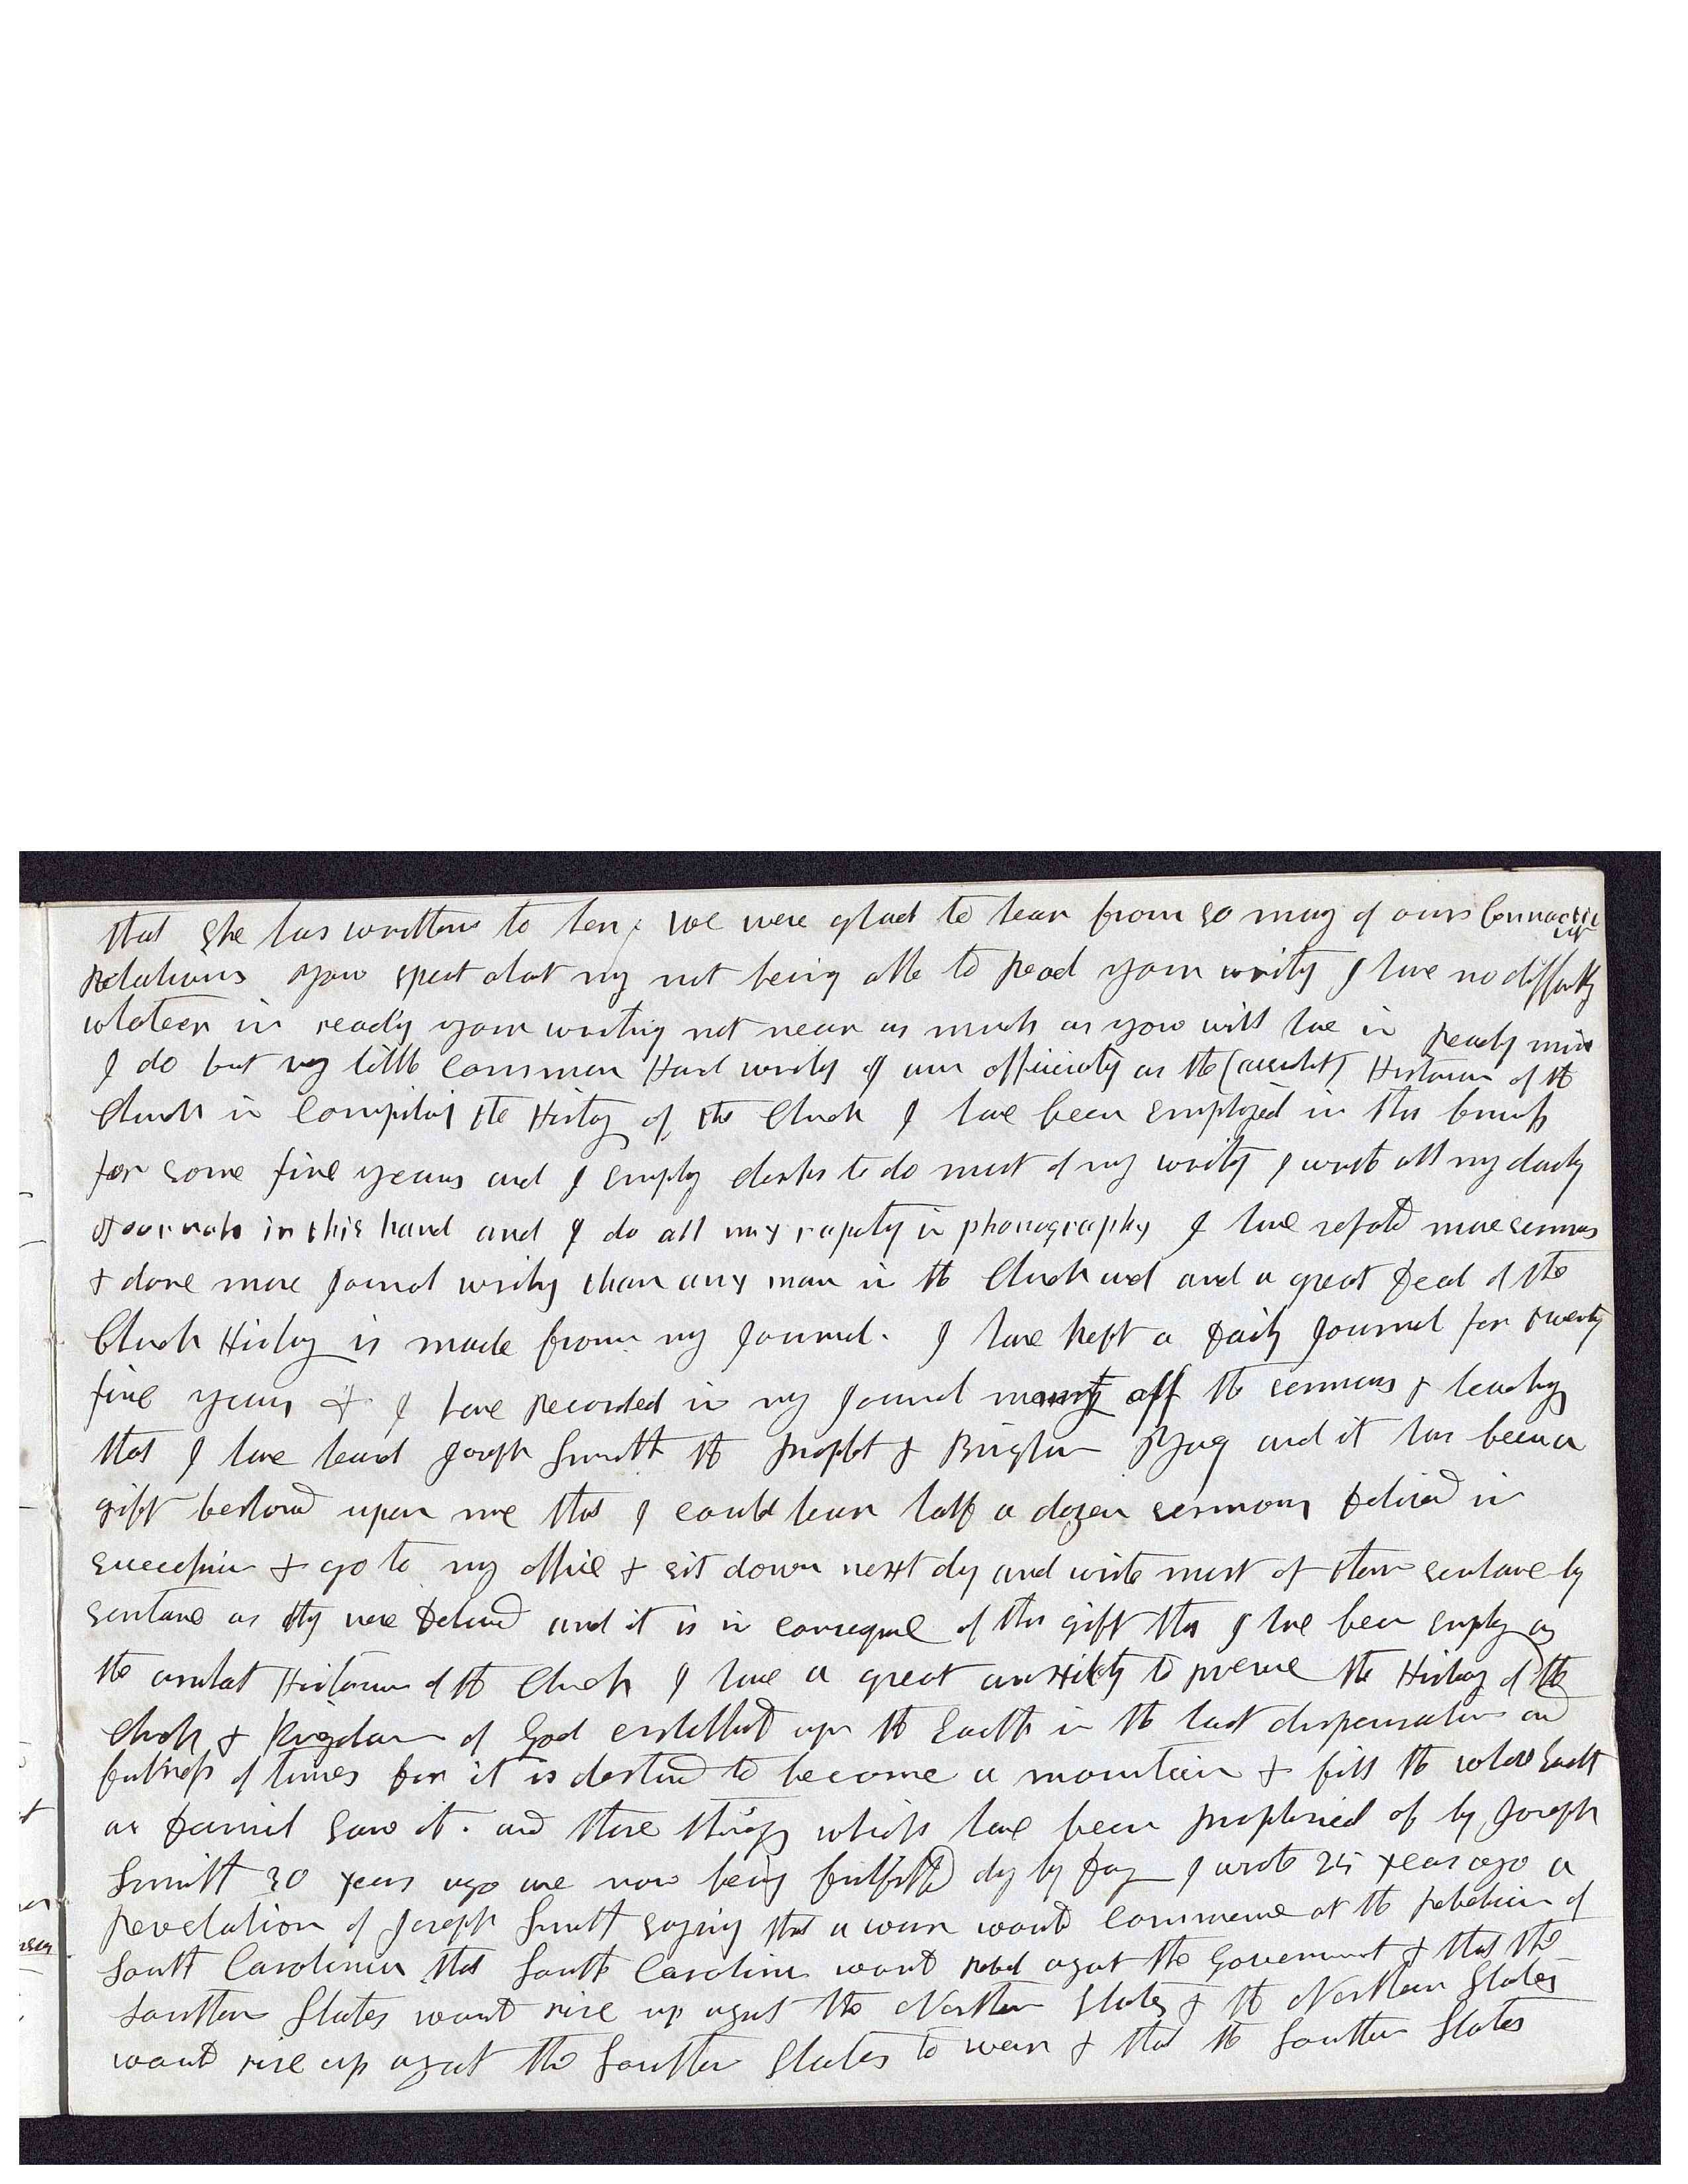 that she has written to her, we were glad to hear from so many of our Connecticut
Relations you speak about my not being able to Read your writing I have no difficulty
whateer in readig your writing not near as much as you will have in Readg mine
I do but vey little Common Hand writg I am officially as the (assistat) Historian of the
Church in Compiling the History of the Church I have been employed in this business
for some five years and I employ clerks to do most of my writing I write all my daily
Journals in this hand and I do all my reporting in phonography I have reported more sermons
& done more Journal writing than any man in the Church and and a great Deal of the
Church History is made from my Journal. I have kept a Daily Journal for twenty
five years & I have Recorded in my Journal most off the sermons & teachings
that I have heard Joseph Smith the Prophet & Brigham Young and it has been a
gift bestowed upon me that I could hear half a dozen sermons Delivered in
succession & go to my office & sit down next day and write most of them sentance by
sentance as they were Delivered and it is in consequence of this gift that I have been employed as
the assistat Historian of the Church I have a great anxiety to preserve the History of the
Church & Kingdom of God established upon the Earth in the last dispensation and
fulness of times for it is destined to become a mountain & fill the whole Earth
as Daniel saw it. and those things which have been prophesied of by Joseph
Smith 30 years ago are now being fulfilled day by Day I wrote 25 years ago a
Revelation of Joseph Smith saying that a war would Commence at the Rebelion of
South Carolinia that South Carolina would Rebel against the Government & that the
Southern States would rise up against the Northern States & the Northern States
would rise up against the Southern States to war & that the Southern States